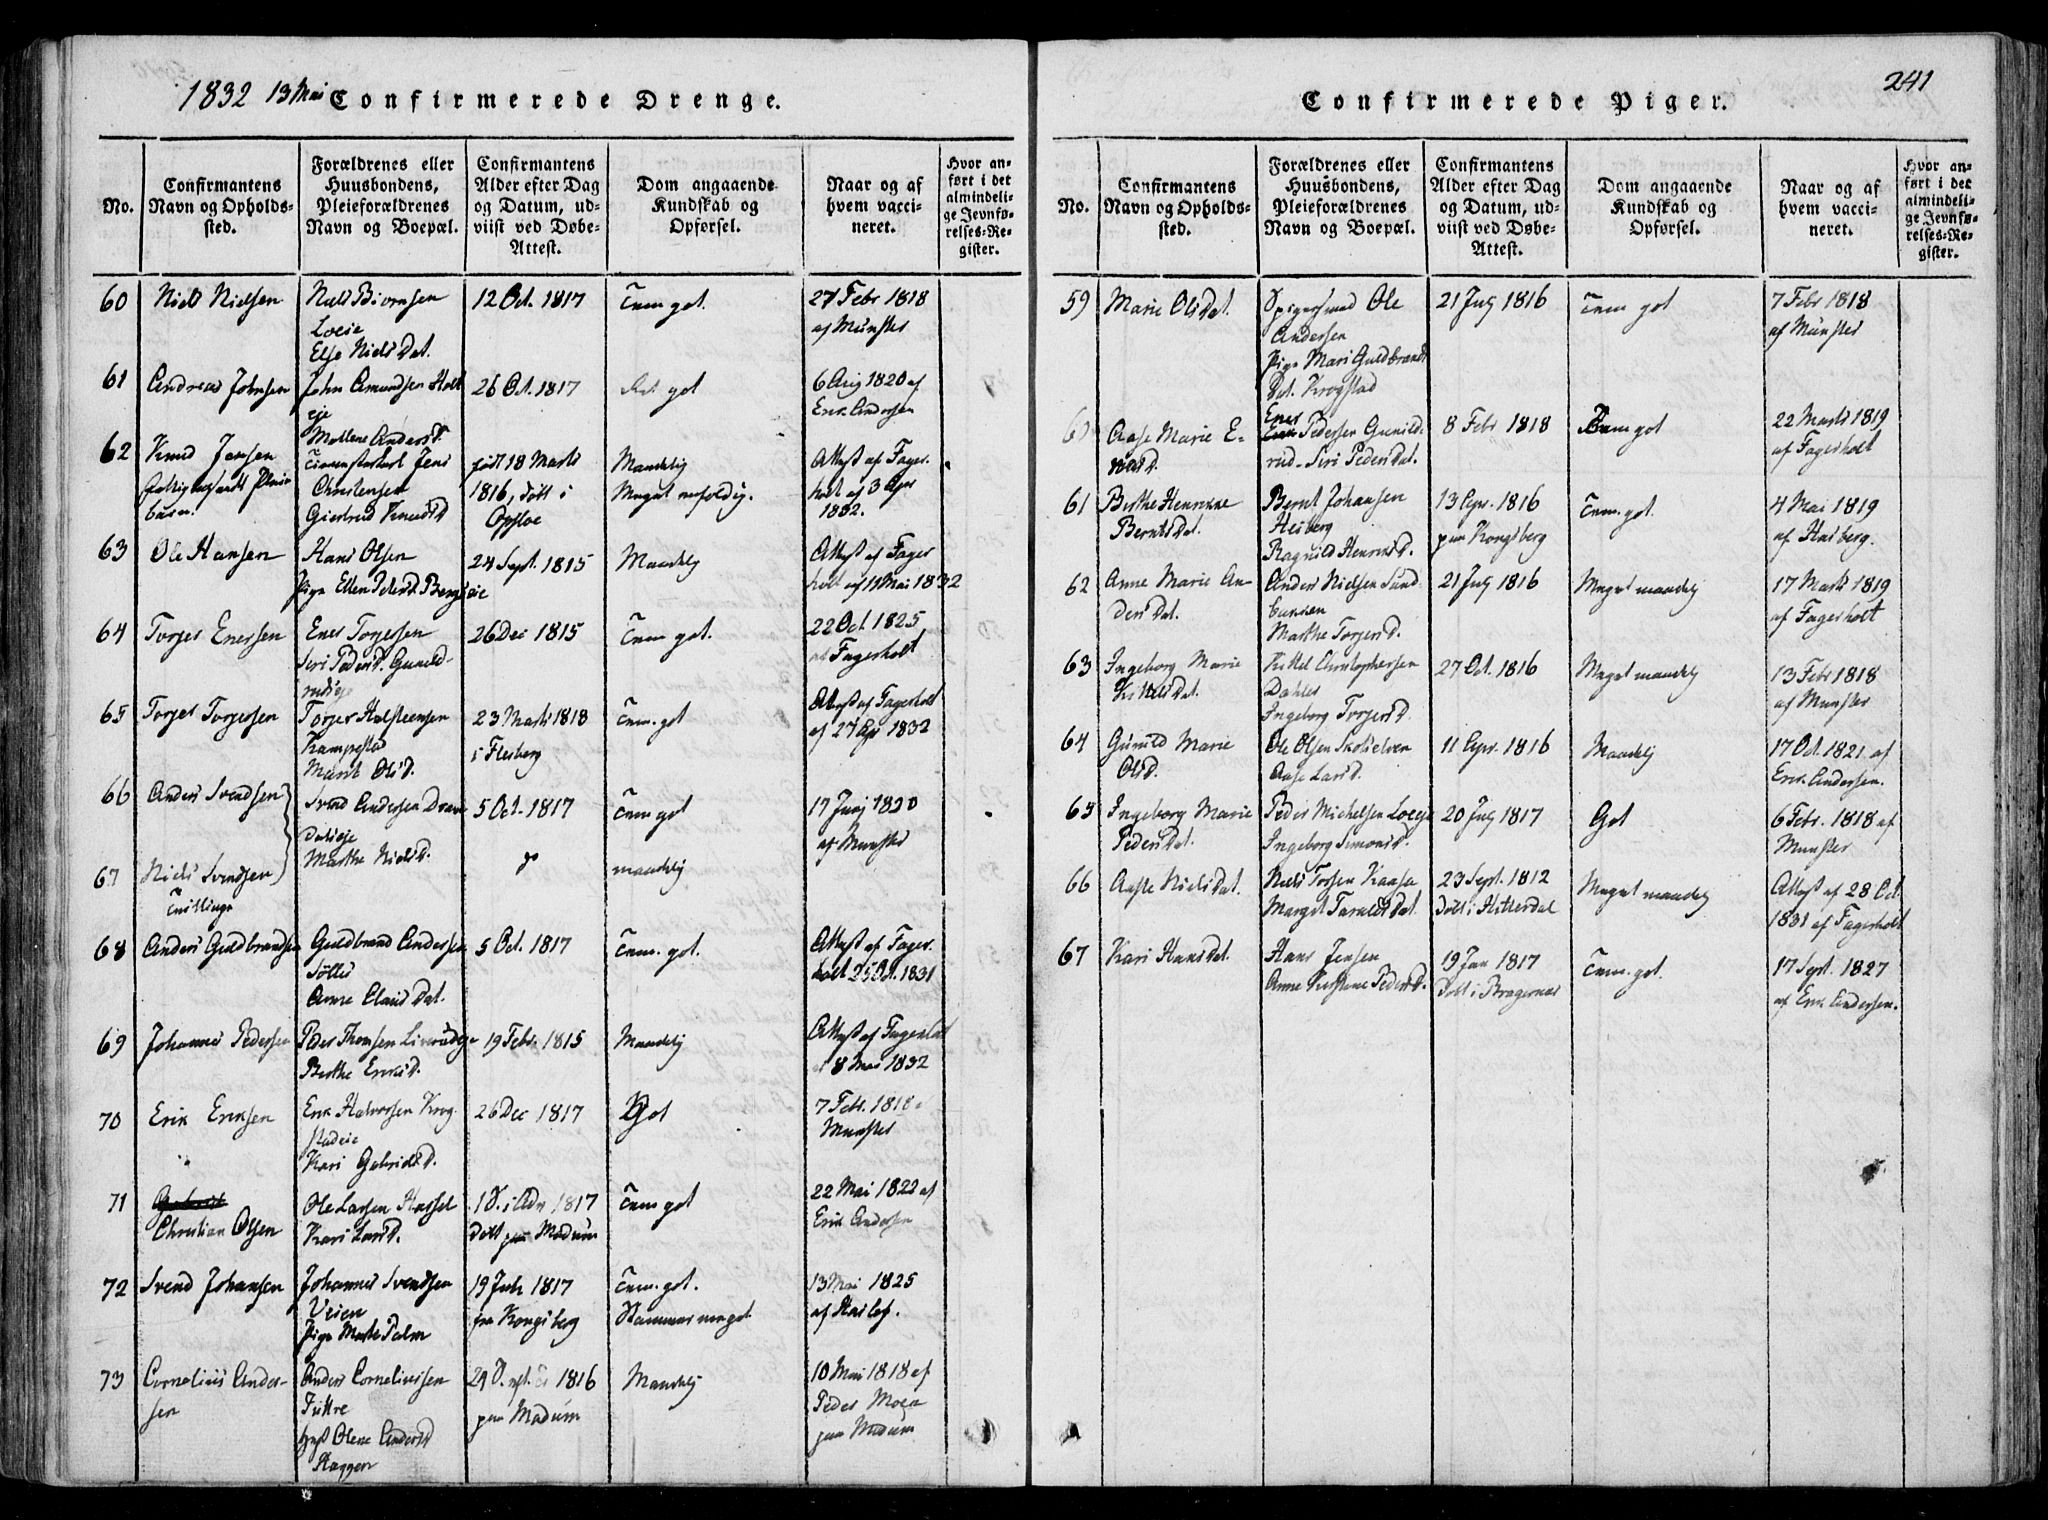 1832 13 Mai Confirmerede Drenge.
No.
Confirmantens
Navn og Opholds-
sted.
Forældrenes eller
Huusbondens,
Pleieforældrenes
Navn og Boepæl.
Confirmantens
Alder efter Dag
og Datum, ud-
viist ved Døbe-
Attest.
Dom angaaende
Kundskab og
Opførsel.
Naar og af
hvem vacci-
neret.
Hvor an-
ført i det
almindeli-
ge Jevnfø-
relses-Re-
gister.
60
Niels Nielsen
Niels Biørnsen
Loeie
Else Niels Dat.
12 Oct. 1817
Tem. got.
27 Febr 1818
af Münster
61
Andreas Johnsen
John Amundsen Holt
eje
Mallene Anders D.
26 Oct. 1817
got
6 Aug 1820 af
Erik Andersen
62
Knud Jensen
barn.
Jens
Christensen
Giertrud Knuds D
født 18 Marts
1816, døbt i
Opsloe
Maadelig
Meget
Attest af Fager-
holt af 3 Apr
1832.
63
Ole Hansen
Hans Olsen
Pige Ellen Peders D. Bergseie
24 Sept. 1815
Maadelig
Attest af Fager
holt af 11 Mai 1832
64
Torger Enersen
Ener Torgersen
Siri Peders D. Gunild-
rudeje
26 Dec 1815
Tem. got.
22 Oct. 1825
af Fagerholt
65
Torger Torgersen
Torger Halsteensen
Kampestad
Marit Ols D.
23 Marts 1818
i Flesberg
Tem. got
Attest af Fagerholt
af 27 Apr 1832
66
Anders Svendsen
Svend Andersen Dram
daleje
Marthe Niels D.
5 Oct. 1817
Tem got
17 Junj 1820
af Münster
67
Niels Svendsen
Tvillinge
do
maadelig
68
Anders Guldbrandsen
Guldbrand Andersen
Søller
Anne Claus Dat.
5 Oct. 1817
Tem. got.
Attest af Fager-
holt 25 Oct. 1831
69
Johannes Pedersen
Peder Thomsen Liverudeje
Berthe Eriks D.
19 Febr. 1815
Maadelig
Attest af Fagerholt
af 8 Mai 1832
70
Erik Eriksen
Erik Halvorsen Krog-
stadeie
Kari Gabriels D.
26 Dec 1817
Got
7 Febr. 1818
Münster
71
Christian Olsen
Ole Larsen Hassel
Kari Lars D.
1 S. i Adv 1817
døbt paa Modum
Tem got
22 Mai 1822 af
Erik Andersen
72
Svend Johansen
Johannes Svendsen
Veien
Pige Marte Palm
19 Julj 1817
fra Kongsberg
Tem. got.
Stammer meget
13 Mai 1825
af
73
Cornelius Ander-
sen
Anders Corneliussen
Tuftre
Olene Anders D
Skaggen
24 S. 1816
paa Modum
Maadelig
10 Mai 1818 af
Peder Moen
paa Modum
241
Confirmerede Piger.
No.
Confirmantens
Navn og Opholds-
sted.
Forældrenes eller
Huusbondens,
Pleieforældrenes
Navn og Boepæl.
Confirmantens
Alder efter Dag
og Datum, ud-
viist ved Døbe-
Attest.
Dom angaaende
Kundskab og
Opførsel.
Naar og af
hvem vacci-
neret.
Hvor an-
ført i det
almindeli-
ge Jevnfø-
relses-Re-
gister.
59
Marie Ols Dat.
Spigersmed Ole
Andersen
Pige Mari Guldbrands
Dat. Krogstad
21 Julj 1816
Tem got
7 Febr 1818
af Münster
60
Aase Marie E-
ners D.
Ener
Pedersen Gunild-
rud - Siri Peders Dat.
8 Febr 1818
Tem got
22 Marts 1819
af Fagerholt
61
Berthe Henrikke
Bernts Dat.
Bernt Johansen
Heiberg
Ragnild Henriks D.
13 Apr. 1816
paa Kongsberg
Tem. got.
4 Mai 1819
af
62
Anne Marie An-
ders Dat.
Anders Nielsen Sand-
backen
Marthe Torgers D.
21 Julj 1816
Meget maadelig
17 Marts 1819
af Fagerholt
63
Ingeborg Marie
Kittels Dat.
Kittel Christophersen
Dahler
Ingeborg Torgers D.
27 Oct. 1816
Meget maadelig
13 Febr 1818
af Münster
64
Gunild Marie
Ols D.
Ole Olsen Skotselven
Aase Lars D.
11 Apr. 1816
Maadelig
17 Oct. 1821 af
Erik Andersen.
65
Ingeborg Marie
Peders Dat.
Peder Michelsen Loeje
Ingeborg Simons D.
20 Julj 1817
Got
6 Febr. 1818 af
Münster
66
Aaste Niels Dat.
Niels Torsen Kaasa
Margit Taralds Dat.
23 Sept. 1812
døbt i Hitterdal
Meget maadelig
Attest af 28 Oct
1831 af Fagerholt
67
Kari Hans Dat.
Hans Jensen
Anne Kirstine Peders D.
19 Jan 1817
døbt i Bragernes
Tem. got.
17 Sept. 1827
af Erik Andersen.